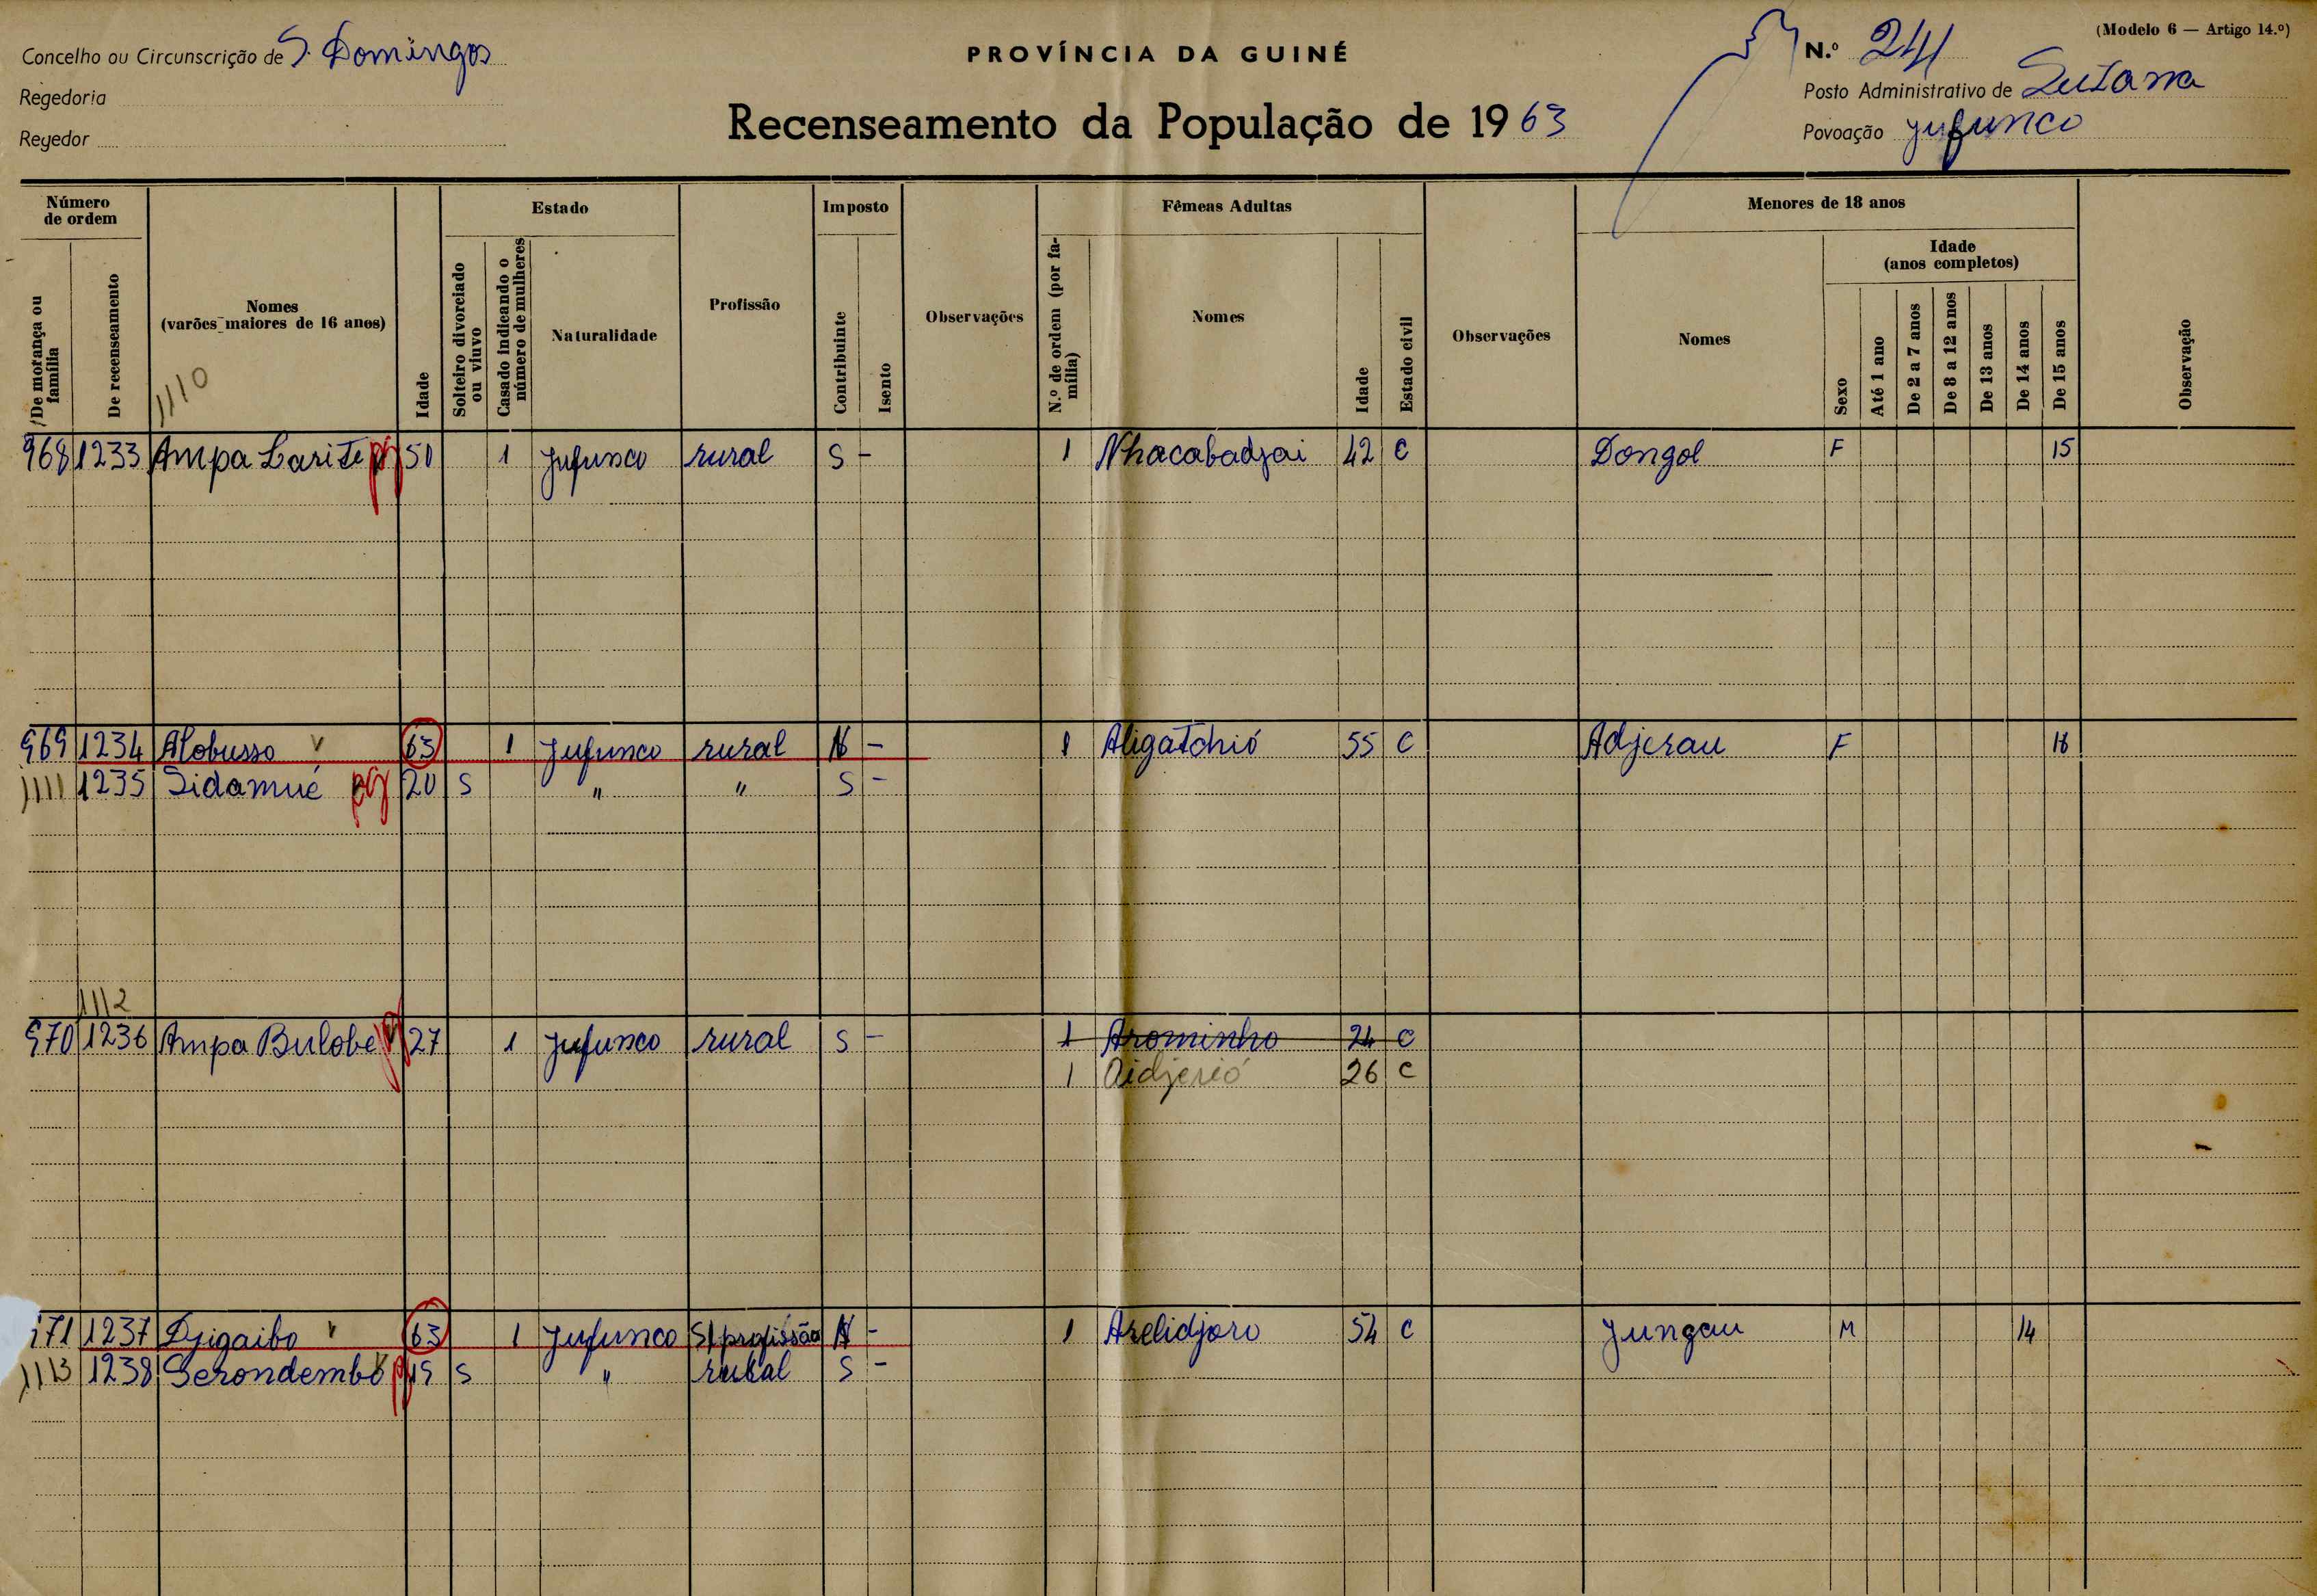 (Modelo 6 — Artigo 14.º)
Concelho ou Circunscrição de S. Domingos
PROVÍNCIA DA GUINÉ
N.º 241
Regedoria
Posto Administrativo de Susana
Regedor
Recenseamento da População de 1963
Povoação Jufunco
Número de ordem
Estado
Imposto
Fêmeas Adultas
Menores de 18 anos
De morança ou família
De recenseamento
Nomes (varões maiores de 16 anos)
Idade
Solteiro divorciado ou viuvo
Casado indicando o número de mulheres
Naturalidade
Profissão
Contribuinte
Isento
Observações
N.º de ordem (por família)
Nomes
Idade
Estado civil
Observações
Nomes
Sexo
Idade (anos completos)
Até 1 ano
De 2 a 7 anos
De 8 a 12 anos
De 13 anos
De 14 anos
De 15 anos
Observação
1110
968 1233 Ampa Larite 50 1 Jufunco rural S - 1 Nhacabadjai 42 C Dongol F 15
969 1234 Alobusso V 63 1 Jufunco rural N - 1 Aligatchió 55 C Adjerau F 16
1111 1235 Sidamué 20 S " " S -
1112
970 1236 Ampa Bulobe 27 1 Jufunco rural S - 1 Arominho 24 C
1 Aidjerió 26 C
971 1237 Djigaibo V 63 1 Jufunco S/profissão N - 1 Arelidjoro 54 C Jungau M 14
1113 1238 Serondembo 19 S " rural S -